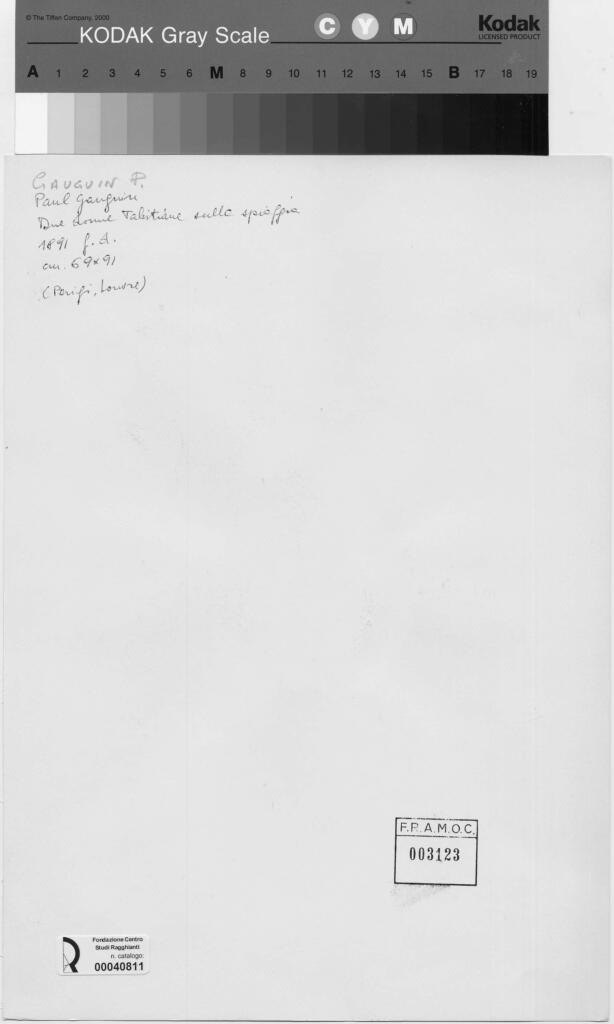 © The Tiffen Company, 2000
KODAK Gray Scale
C Y M
Kodak
LICENSED PRODUCT
A 1 2 3 4 5 6 M 8 9 10 11 12 13 14 15 B 17 18 19
GAUGUIN P.
Paul Gauguin
Due donne Tahitiane sulla spiaggia
1891 f. A.
cm. 69x91
(Parigi, Louvre)
F.R.A.M.O.C.
003123
Fondazione Centro
Studi Ragghianti
n. catalogo:
00040811